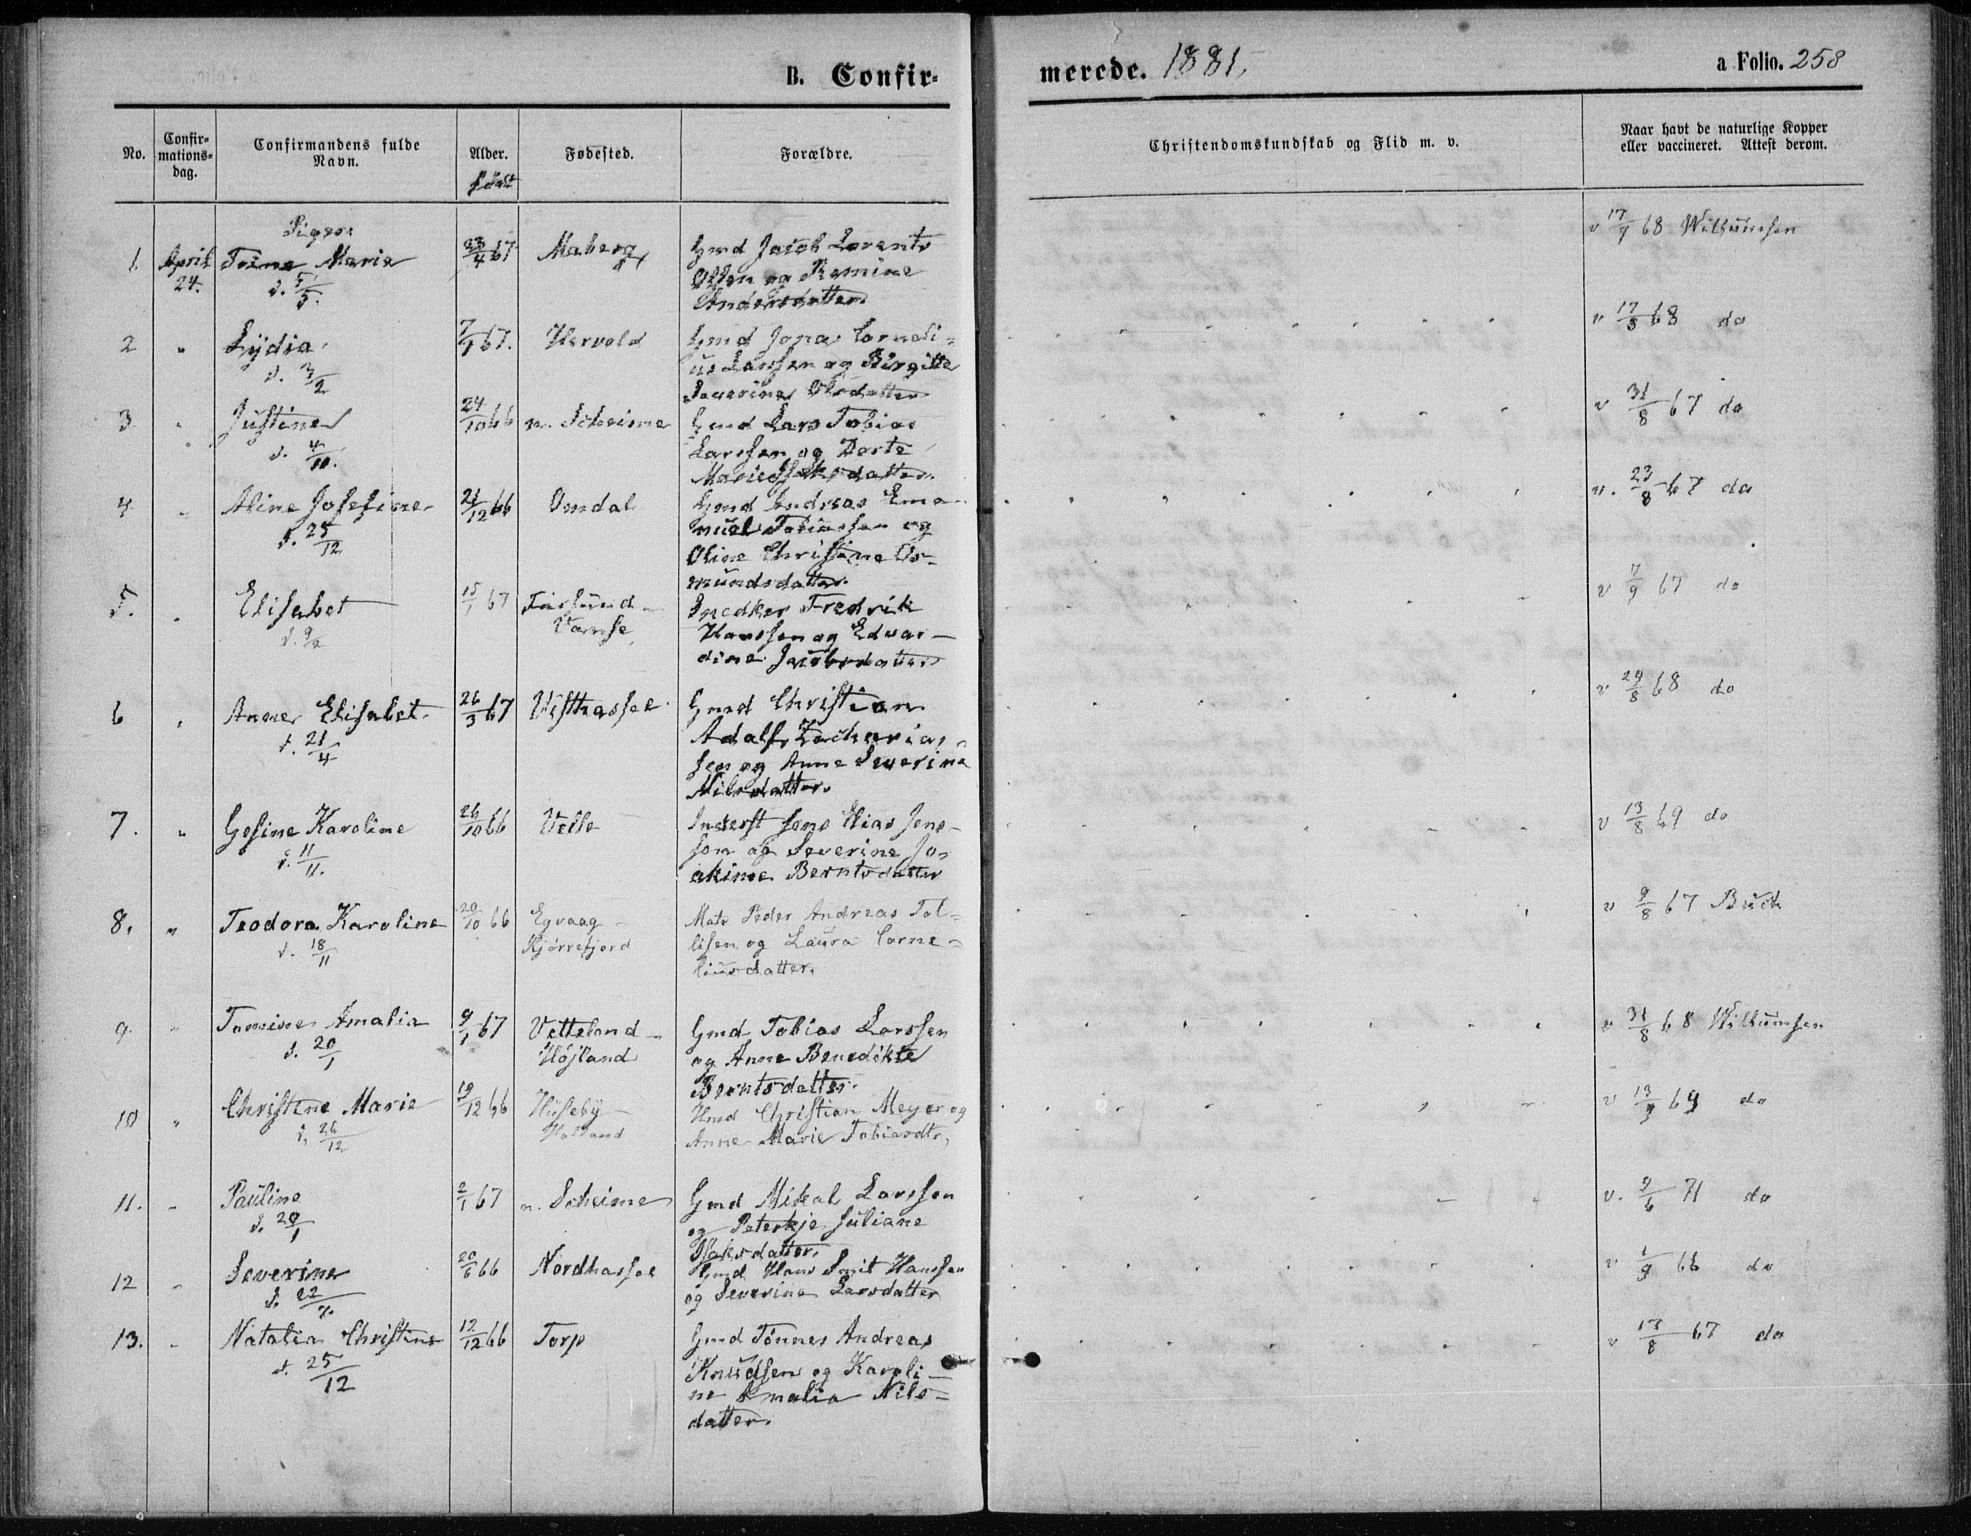 B. Confir-
merede. 1881.
a Folio. 258
No.
Confir-
mations-
dag.
Confirmandens fulde
Navn.
Alder.
født
Fødested.
Forældre.
Christendomskundskab og Flid m. v.
Naar havt de naturlige Kopper
eller vaccineret. Attest derom.
Piger
1. April Maria 23/4 67 Maberg Gmd Jacob Lorents
24. d. 5/5. Olsen og
Andersdatter
v 17/9 68 Willumsen
2 " Lydia. 7/1 67. Hervold Gmd Jonas Corneli-
d. 3/2 us Larssen og Birgitte
Severine Olsdatter
v 17/8 68 do
3 " Justine 24/10 66 n. Skeime Gmd Lars Tobias
d. 4/11. Larssen og Dorte
Marie Isaksdatter
v 31/8 67 do
4 " Aline Josefine 21/12 66 Omdal Gmd Andreas Ema-
d. 25/12 nuel Tobiassen og
Oline Christine Os-
mundsdatter.
v. 23/8 67 do
5. " Elisabet 15/1 67 Farsund- Snedker Fredrik
d. 9/2 Vanse Hanssen og Edvar-
dine Jacobsdatter
v 7/9 67 do
6 " Anne Elisabet. 26/3 67 Vesthassel Gmd Christian
d. 21/4 Adolf Zacharias-
sen og Anne Severine
Nilsdatter.
v 29/8 68 do
7. " Gesine Karoline 26/10 66 Velle Inderst Jens Elias Jens-
d. 11/11. sen og Severine Jo-
akime Berntsdatter
v 13/8 69 do
8. " Teodora Karoline 20/10 66 Eg­vaag- Mats Peder Andreas Tol-
d. 18/11 Kjørrefjord lisen og Laura Corne-
liusdatter.
v 9/8 67 Buck
9. " Tomine Amalia 9/1 67 Vetteland- Gmd Tobias Larssen
d. 20/1 Højland og Anne Benedikte
Berntsdatter.
v 31/8 68 Willumsen
10 " Christine Marie 19/12 66 Huseby- Hmd Christian Meyer og
d. 26/12 Anne Marie Tobiasdtr.
v 13/9 69 do
11. " Pauline 2/1 67 n. Skeime Gmd Mikal Larssen
d. 20/1 og Peterkje Juliane
Isaksdatter.
v. 9/6 71 do
12 " Severine 20/6 66 Nordhassel Gmd Hans Smit Hanssen
d. 22/7. og Severine Larsdatter
v 1/9 68 do
13. " Natalia Christine 12/12 66 Torp Gmd Tønnes Andreas
d. 25/12 Knudsen og Karoli-
ne Amalia Nils-
datter.
v 13/8 67 do